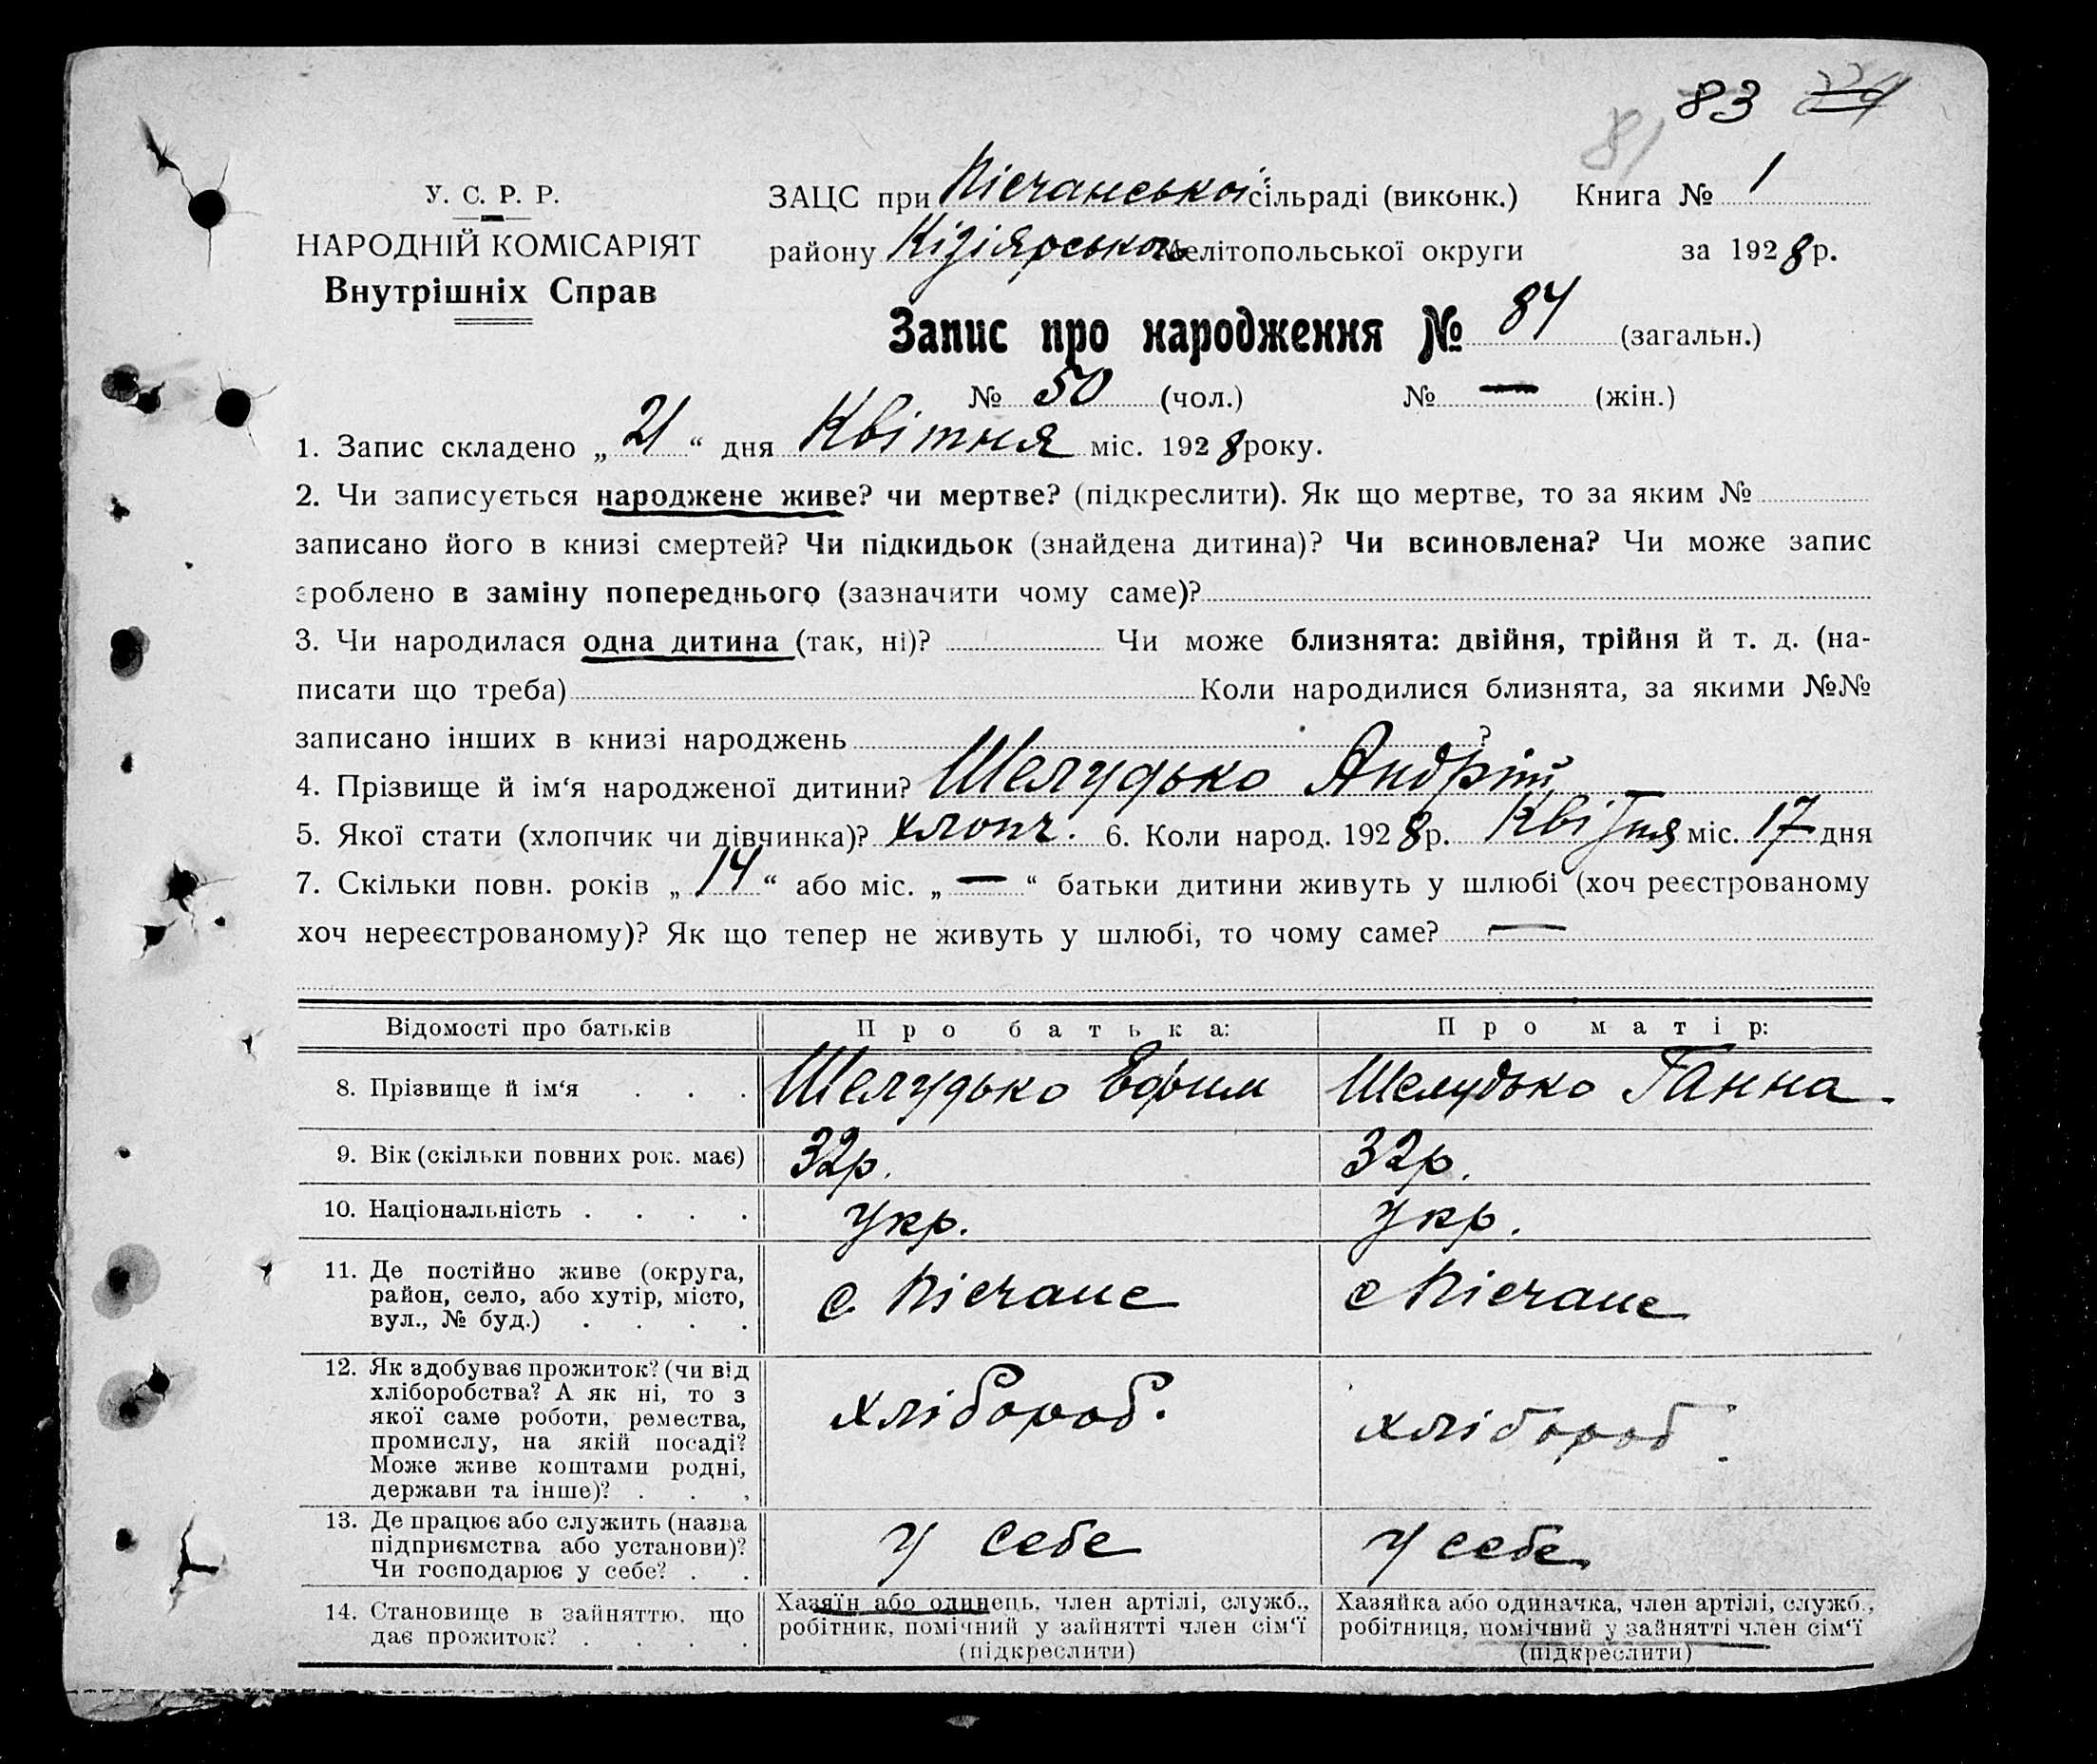 83
81
У. С. Р. Р.
НАРОДНІЙ КОМІСАРІЯТ
Внутрішніх Справ
ЗАЦС при Пісчанської сільраді (виконк.) Книга № 1
району Кізіярсько Мелітопольської округи за 1928 р.
Запис про народження № 84 (загальн.)
№ 50 (чол.) № — (жін.)
1. Запис складено „ 21 “ дня Квітня міс. 1928 року.
2. Чи записується народжене живе? чи мертве? (підкреслити). Як що мертве, то за яким №
записано його в книзі смертей? Чи підкидьок (знайдена дитина)? Чи всиновлена? Чи може запис
зроблено в заміну попереднього (зазначити чому саме)?
3. Чи народилася одна дитина (так, ні)? Чи може близнята: двійня, трійня й т. д. (на-
писати що треба) Коли народилися близнята, за якими №№
записано інших в книзі народжень ?
4. Прізвище й ім‘я народженої дитини? Шелудько Андрій
5. Якої стати (хлопчик чи дівчинка)? хлопч. 6. Коли народ. 1928 р. Квітня міс. 17 дня
7. Скільки повн. років „ 14 “ або міс. „ — “ батьки дитини живуть у шлюбі (хоч реєстрованому
хоч нереєстрованому)? Як що тепер не живуть у шлюбі, то чому саме? —
Відомості про батьків Про батька: Про матір:
8. Прізвище й ім‘я . . . Шелудько Ефим Шелудько Ганна
9. Вік (скільки повних рок. має) 32 р. 32 р.
10. Національність . . . . Укр. Укр.
11. Де постійно живе (округа,
район, село, або хутір, місто,
вул., № буд.) . . . .
с. Пісчане с Пісчане
12. Як здобуває прожиток? (чи від
хліборобства? А як ні, то з
якої саме роботи, ремества,
промислу, на якій посаді?
Може живе коштами родні,
держави та інше)? . . .
хлібороб. хлібороб.
13. Де працює або служить (назва
підприємства або установи)?
Чи господарює у себе? . .
у себе у себе
14. Становище в зайняттю, що
дає прожиток? . . . .
Хазяїн або одинець, член артілі, служб.,
робітник, помічний у зайнятті член сім‘ї
(підкреслити)
Хазяйка або одиначка, член артілі, служб.,
робітниця, помічний у зайнятті член сім‘ї
(підкреслити)